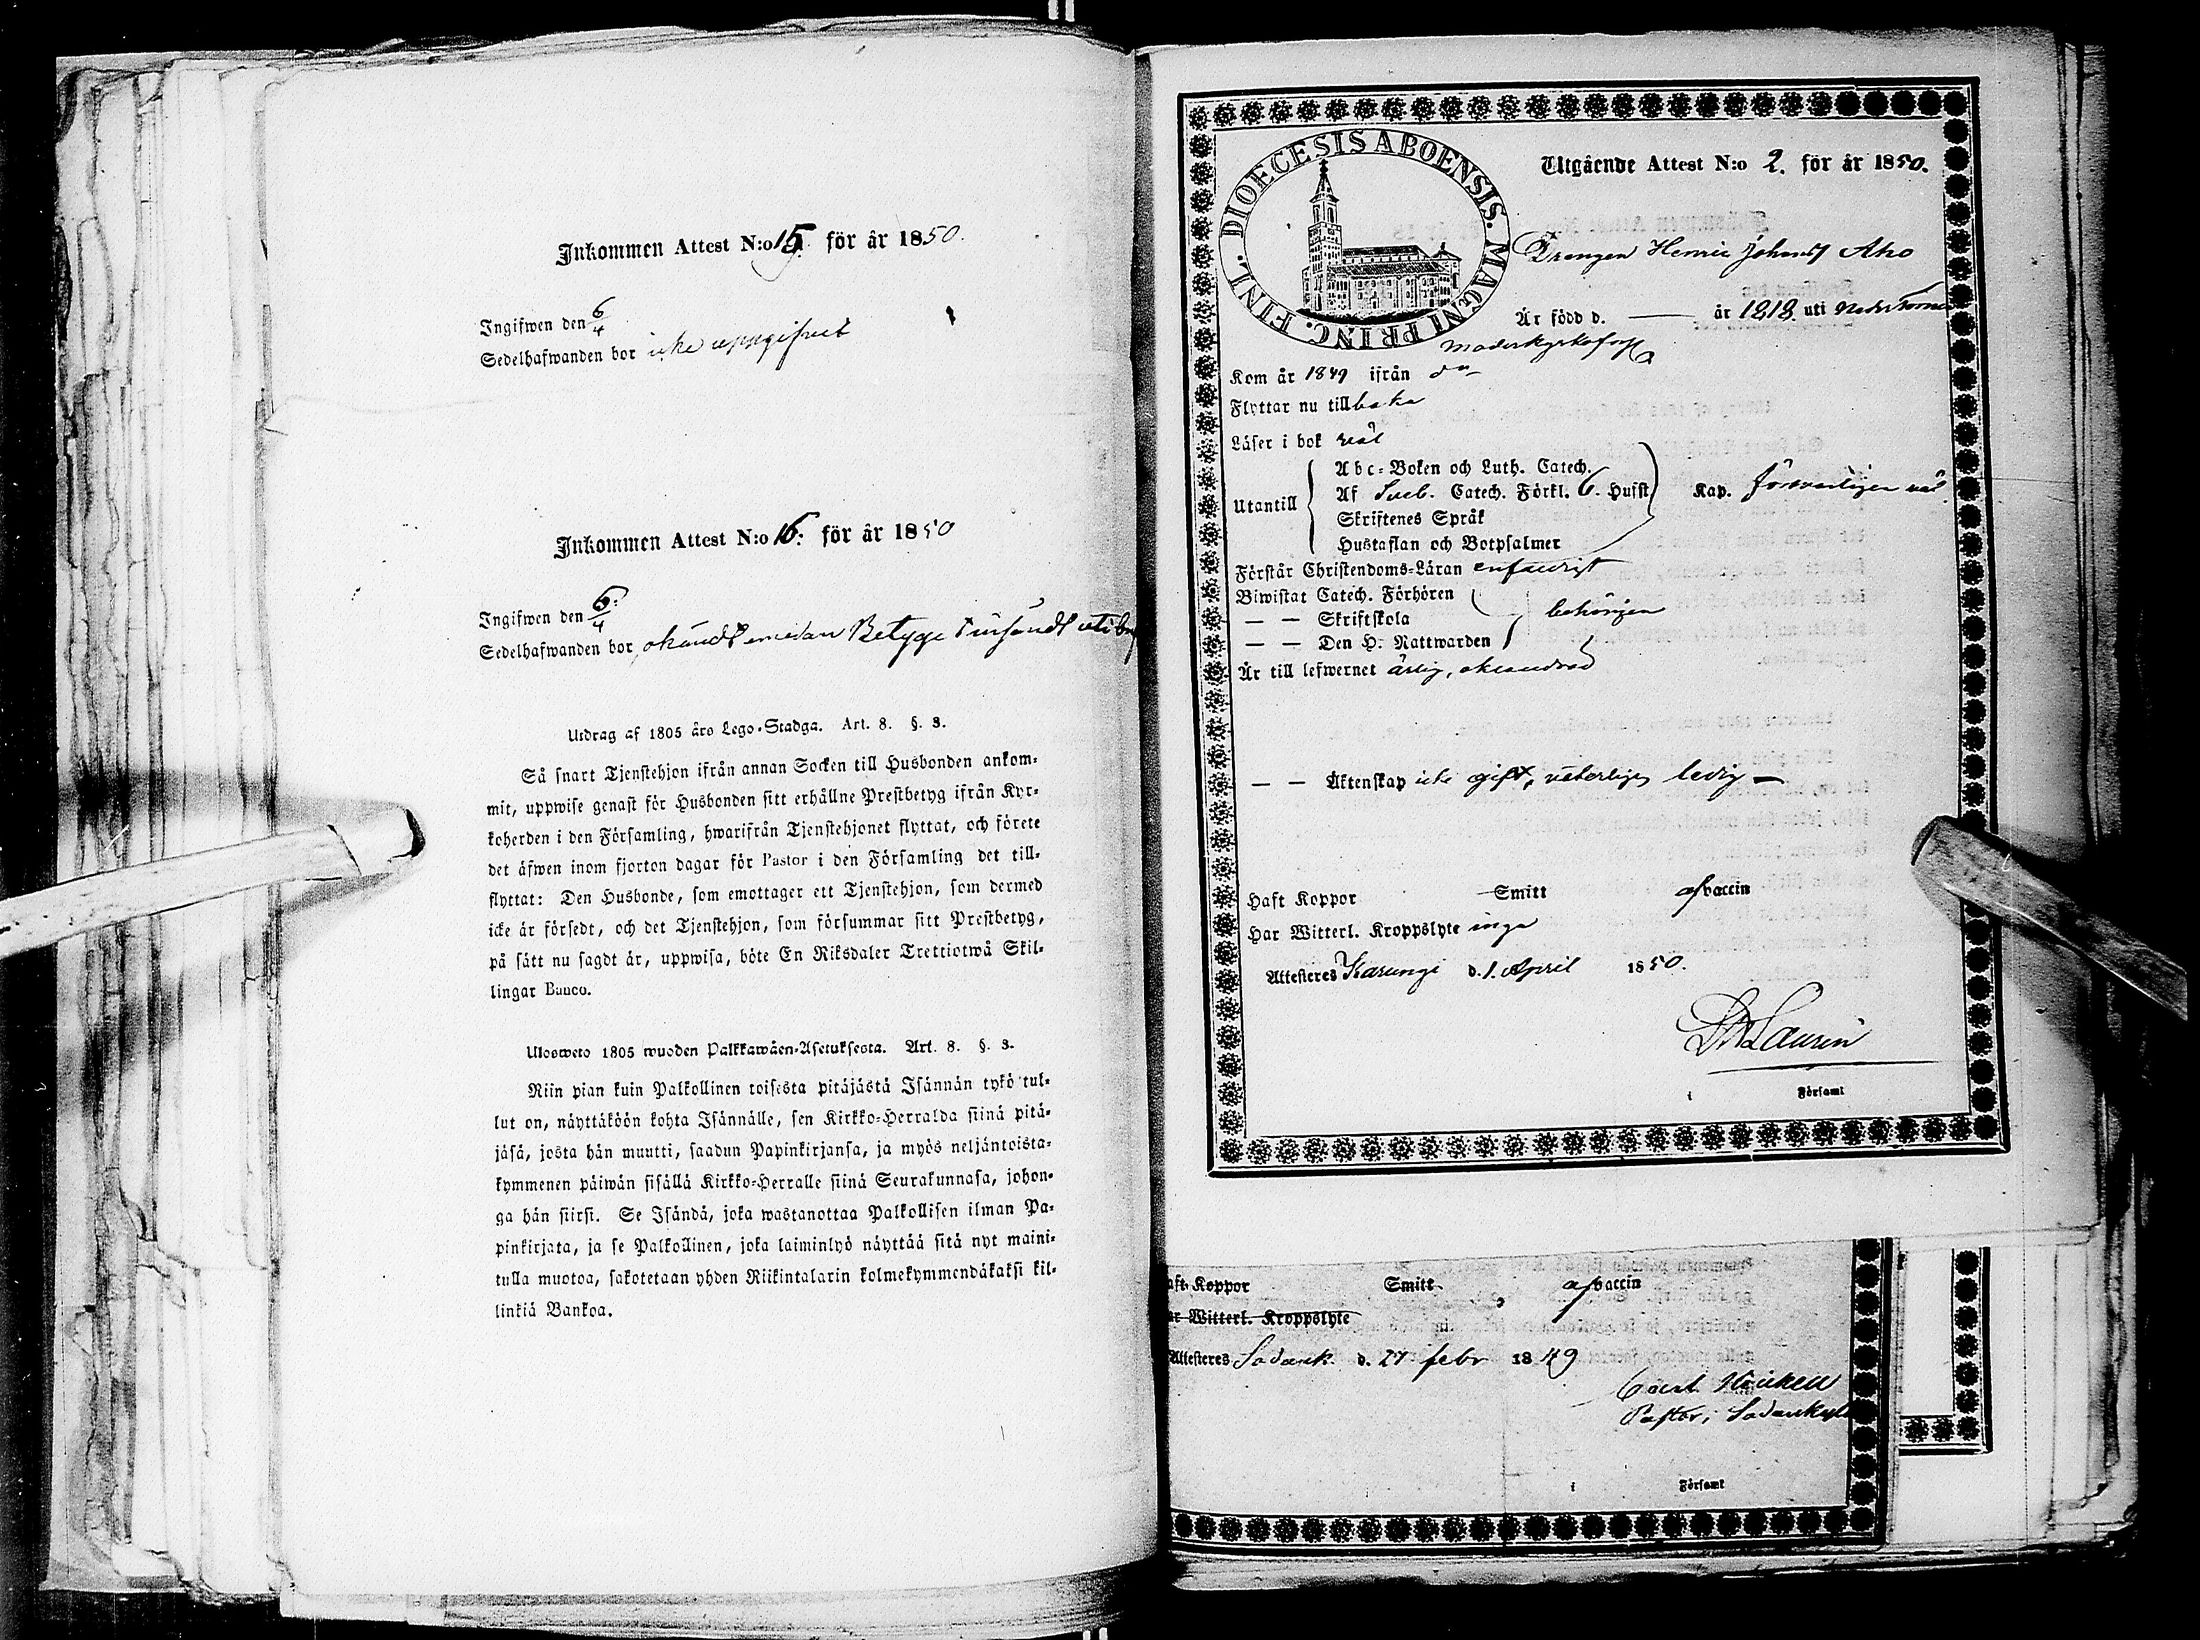 Inkommen Attest N:o 15. för år 1850.
Ingifwen den 6/4
Sedelhafwanden bor icke uppgifvet
Inkommen Attest N:o 16: för år 1850
Ingifwen den 6:/4
Sedelhafwanden bor okändt emedan Betyget insändt uti
Utdrag af 1805 års Lego-Stadga. Art. 8. §. 3.
Så snart Tjenstehjon ifrån annan Socken till Husbonden ankom-
mit, uppwise genast för Husbonden sitt erhållne Prestbetyg ifrån Kyr-
koherden i den Församling, hwarifrån Tjenstehjonet flyttat, och förete
det äfwen inom fjorton dagar för Pastor i den Församling det till-
flyttat: Den Husbonde, som emottager ett Tjenstehjon, som dermed
icke är försedt, och det Tjenstehjon, som försummar sitt Prestbetyg,
på sätt nu sagdt är, uppwisa, böte En Riksdaler Trettiotwå Skil-
lingar Banco.
Ulosweto 1805 wuoden Palkkawäen-Asetuksesta. Art. 8. §. 3.
Niin pian kuin Palkollinen toisesta pitäjästä Isännän tykö tul-
lut on, näyttäköön kohta Isännälle, sen Kirkko-Herralda siinä pitä-
jäsä, josta hän muutti, saadun Papinkirjansa, ja myös neljäntoista-
kymmenen päiwän sisällä Kirkko-Herralle siinä Seurakunnasa, johon-
ga hän siirsi. Se Isändä, joka wastanottaa Palkollisen ilman Pa-
pinkirjata, ja se Palkollinen, joka laiminlyö näyttää sitä nyt maini-
tulla muotoa, sakotetaan yhden Riikintalarin kolmekymmendäkaksi kil-
linkiä Bankoa.
DIOECESIS ABOENSIS. MAGNI PRINC. FINL.
Utgående Attest N:o 2. för år 1850.
Drengen Henric Johans Aho
Är född d. — år 1818. uti Neder Torne
Moderkyrkoförs
Kom år 1849 ifrån do
Flyttar nu tillbaka
Läser i bok väl
Utantill
Abc-Boken och Luth. Catech.
Af Sveb. Catech. Förkl. 6. Hufst Kap. försvarligen väl.
Skriftenes Språk
Hustaflan och Botpsalmer
Förstår Christendoms-Läran enfaldigt
Biwistat Catech. Förhören
— — Skriftskola behörigen
— — Den H. Nattwarden
Är till lefwernet ärlig, oklandrad
— — Äktenskap icke gift, veterligen ledig —
Haft Koppor Smitt af vaccin
Har Witterl. Kroppslyte inga
Attesteres Karungi d. 1. April 1850.
Laurin
i Församl
aft Koppor Smitt af vaccin
ar Witterl. Kroppslyte
Attesteres Sodank. d. 27 febr 1849
Carl
Pastor i Sodankyl
i Församl